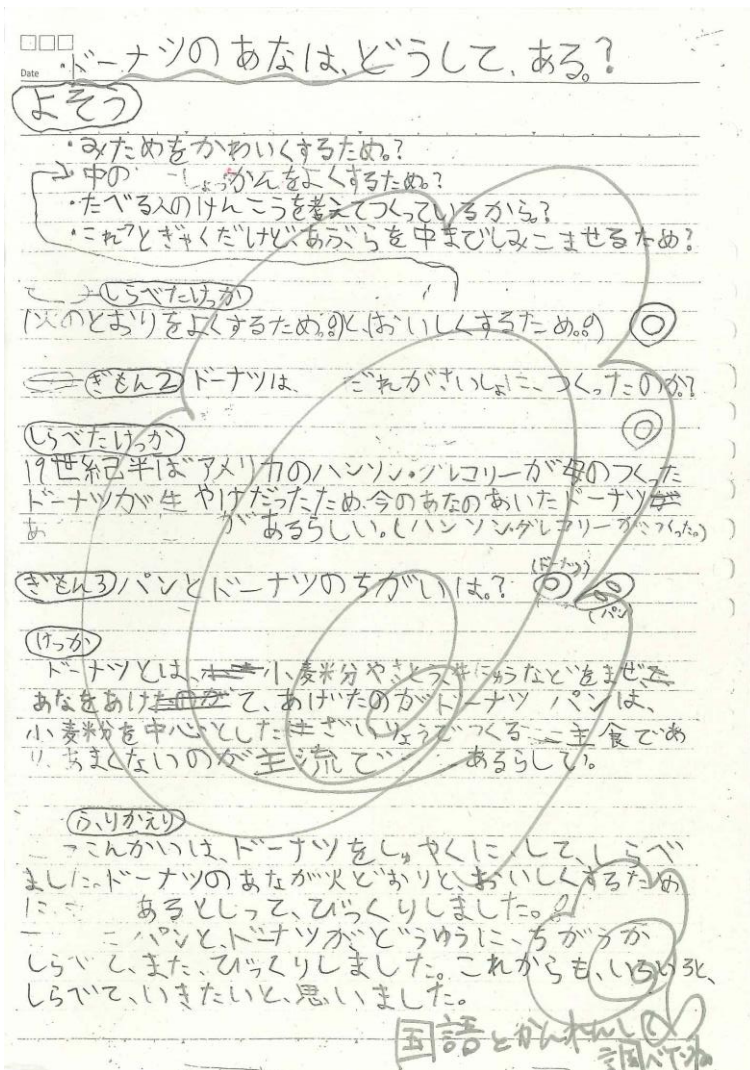 Date
ドーナツのあなは、どうして、ある。?
よそう
・みためをかわいくするため。?
中の しょっかんをよくするため。?
・たべる人のけんこうを考えてつくっているから。?
・これとぎゃくだけど、あぶらを中までしみこませるため?
しらべたけっか
(火のとおりをよくするため。)と、(おいしくするため。)
ぎもん2 ドーナツは、 だれがさいしょに、つくったのか?
しらべたけっか
19世紀半ばアメリカのハンソン・グレコリーが母のつくった
ドーナツが生やけだったため、今のあなのあいたドーナツ
があるらしい。(ハンソン・グレコリーがつくった。)
(ドーナツ)
ぎもん3 パンとドーナツのちがいは。?
(パン
けっか
ドーナツとは、小麦米分やさとう、牛にゅうなどをまぜ、
あなをあけて、あげたのがドーナツ パンは、
小麦粉を中心とした ざいりょうでつくる 主食であ
り、あまくないのが主流で あるらしい。
ふりかえり
こんかいは、ドーナツをしゅやくに、して、しらべ
ました。ドーナツのあなが火どおりと、おいしくするため
に あるとしって、びっくりしました。
パンと、ドーナツが、どうゆうに、ちがうか
しらべて、また、びっくりしました。これからも、いろいろと、
しらべて、いきたいと、思いました。
国語とかんれんして
調べたね